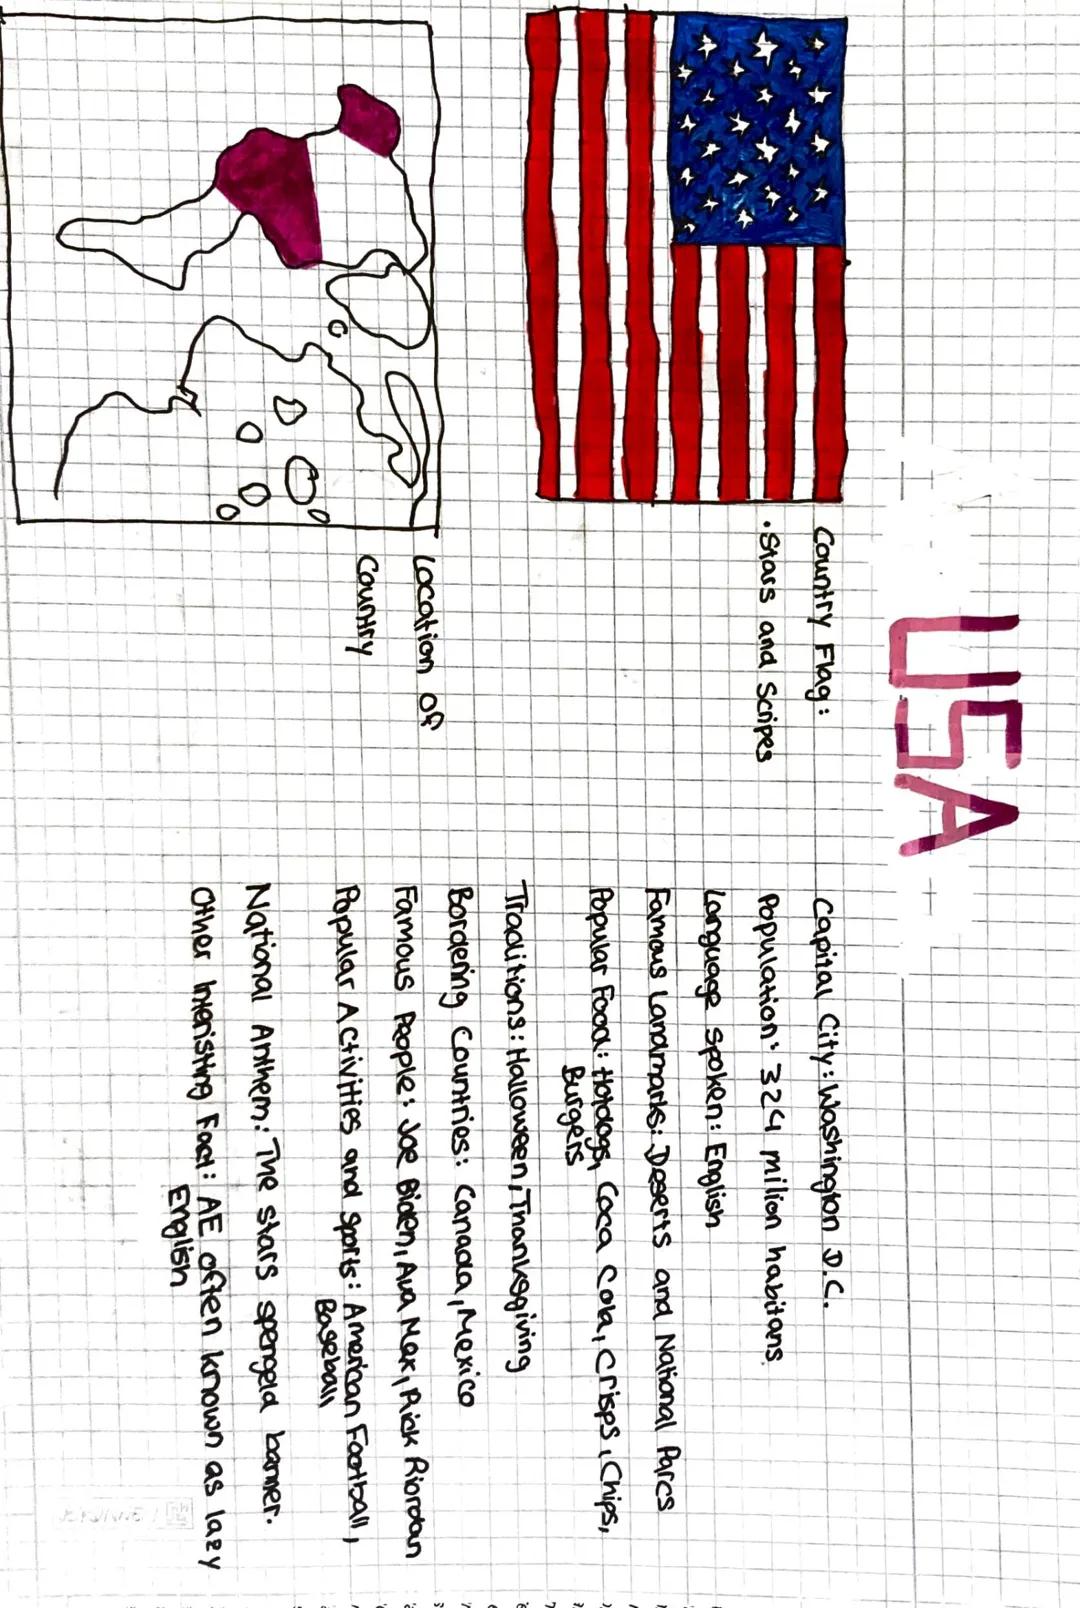 USA
Country Flag:
• Stars and Scripes
Location of
Country
Capital City: Washington D.C.
Population: 324 milion habitans
Language spoken: English
Famous Landmarks: Deserts and National Parcs
Popular Food: Hotdogs, Coca Cola, Crisps, Chips,
Burgers
Traditions: Halloween, Thanksgiving
Bordering Countries: Canada, Mexico
Famous People: Joe Biden, Ava Max, Rick Riordan
Popular Activities and Sports: American Football,
Baseball
National Anthem: The stars spengeld banner.
Other Interisting Fact: AE often known as lazy
English